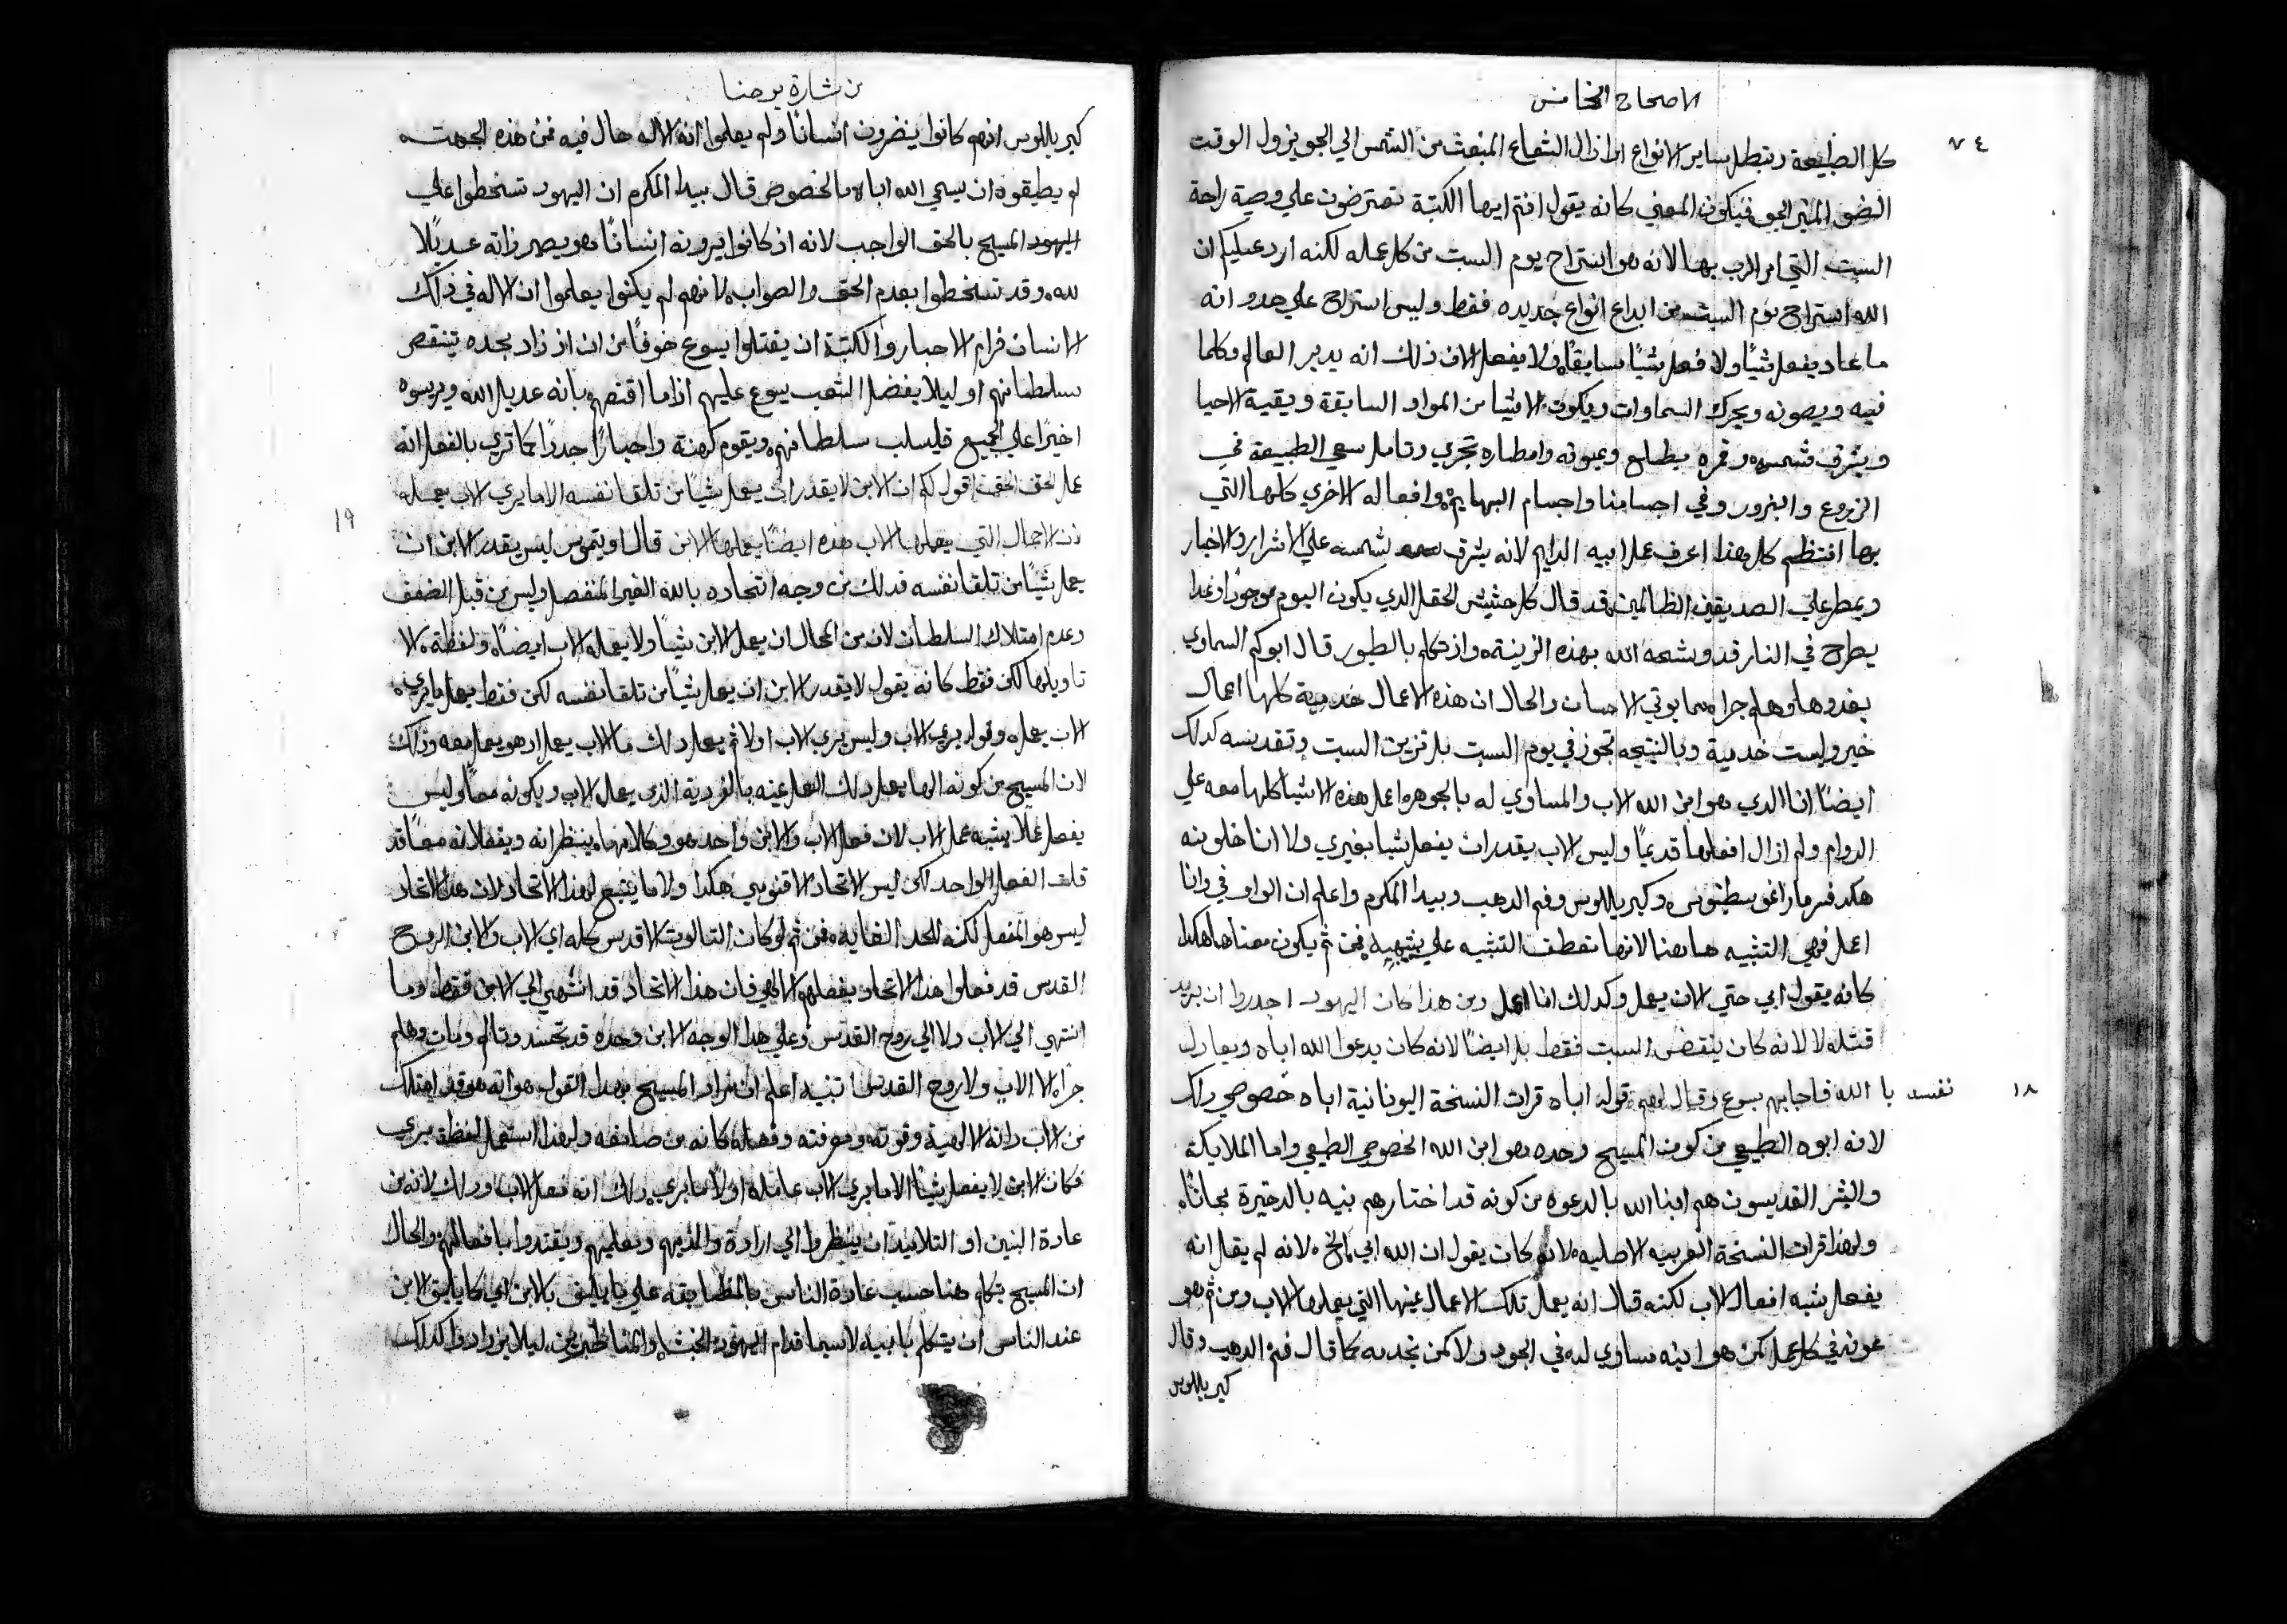 الاصحاح الخامس
٧٤
كل الطبيعة وتبطل ساير الانواع اذا زال الشعاع المنبعث من الشمس الي الجو يزول الوقت
الضو المنير الجو فيكون المعني كانه يقول انتم ايها الكتبة تعترضون علي وصية راحة
السبت التي امر الرب بها لانه هو استراح يوم السبت من كل عمله لكنه ارد عليكم ان
الله استراح يوم السبت من ابداع انواع جديده فقط وليس استراح علي حدو انه
ما عاد يفعل شيًا ولا فعل شيًا سابقًا ولا يفعل الان ذلك انه يدبر العالم وكلما
فيه ويصونه ويحرك السماوات ويكون الاشيا من المواد السابقة وبقية الاحيا
ويشرق شمسه وقمره يطلع وعيونه وامطاره تجري وتامل سعي الطبيعة في
الزروع والبزور وفي اجسامنا واجسام البهايم وافعاله الاخري كلها التي
بها انتظم كل هذا اعرف عمل ابيه الدايم لانه يشرق شمسه علي الاشرار والاخيار
ويمطر علي الصديقين الظالمين وقد قال كل حشيش الحقل الدي يكون اليوم موجودًا وغدا
يطرح في النار قد وشحه الله بهذه الزينة واذ تكلم بالطيور قال ابوكم السماوي
يغدوها وهلم جرا مما بوتي الاحسان والحال ان هذه الاعمال خدمية كلها اعمال
خير وليست خدمية وبالنتيجه تجوز في يوم السبت بل تزين السبت وتقدسه كدلك
ايضًا انا الدي هو ابن الله الاب والمساوي له بالجوهر اعمل هذه الاشيا كلها معه علي
الدوام ولم ازال افعلها قديمًا وليس الاب يقدر ان يفعل شيا بغيري ولا انا خلو منه
هكد فسر مار اغوسطينوس وكيريللوس وفم الدهب وبيدا المكرم واعلم ان الواو في وانا
اعمل فهي التشبيه هاهنا لانها تعطف التشبيه علي شبهه فمن ثم يكون معناها هكدا
كانه يقول ابي حتي الان يعمل وكدلك انا اعمل ومن هذا كان اليهود اجدروا ان يريد
قتله لا لانه كان ينقض السبت فقط بل ايضًا لانه كان يدعوا الله اباه ويعادل
١٨
نفسه با الله فاجابهم يسوع وقال لهم قوله اباه قرات النسخة اليونانية اباه خصوصي دلك
لانه ابوه الطبيعي من كون المسيح وحده هو ابن الله الخصوصي الطبيعي واما الملايكة
والبشر القديسون هم ابنا الله بالدعوه من كونه قد اختارهم بنيه بالدخيرة مجانًا
ولهذا قرات النسخة العربيه الاصليه لانه كان يقول ان الله ابي لانه لم يقل انه
يفعل شبه افعال الاب لكنه قال انه يعمل تلك الاعمال عينها التي يعملها الاب ومن ثم هو
عونه في كل عمل كمن هو ابنه مساوي له في الجوهر لا كمن يخدمه كما قال فم الدهب وقال
كيريللوس
من بشارة يوحنا
كيريللوس انهم كانوا ينضرون انسانًا ولم يعلموا انه الاله حال فيه فمن هذه الجهت
لم يطيقوه ان يسمي الله اباه بالخصوص قال بيدا المكرم ان اليهود تسخطوا علي
اليهود المسيح بالحق الواجب لانه اذ كانوا يرونه انسانًا وهو يصير ذاته عديلًا
لله وقد تسخطوا بعدم الحق والصواب لانهم لم يكنوا يعلموا ان الاله في ذلك
الانسان فرام الاحبار والكتبة ان يقتلوا يسوع خوفًا من ان اذ زاد بجده تنتقص
سلطانهم او ليلا يفضل الشعب يسوع عليهم اذا ما اقنعهم بانه عديل الله ويريسوه
اخيرًا علي الجميع فليسلب سلطانهم ويقوم كهنة واحبارًا جددًا كما تري بالفعل انه
عمل الحق الحق اقول لكم ان الابن لا يقدر ان يعمل شيًا من تلقا نفسه الا ما يري الاب يعمله
١٩
لان الاعمال التي يعملها الاب هذه ايضًا يعملها الابن قال اوتيموس ليس يقدر الابن ان
يعمل شيًا من تلقا نفسه فدلك من وجه اتحاده بالله الغير المنفصل وليس من قبل الضعف
وعدم امتلاك السلطان لان من المحال ان يعمل الابن شيًا ولا يعمله الاب ايضًا ولفظة الا
تاويلها لكن فقط كانه يقول لا يقدر الابن ان يعمل شيًا من تلقا نفسه لكن فقط يعمل ما يري
الاب يعمله وقوله يري الاب وليس يري الاب اولا ثم يعمل دلك ما الاب يعمل اد هو يعمل معه وذلك
لان المسيح من كونه الها يعمل دلك العمل عينه بالفردية الذي يعمل الاب ويكونه معًا وليس
يفعل عملًا يشبه عمل الاب لان فعل الاب والابن واحد هو وكلاهما ينظرانه ويفعلانه معًا قد
قلت الفعل الواحد لكن ليس الاتحاد الاقنومي هكدا ولا ما يتبع لهذا الاتحاد لان هذا الاتحاد
ليس هو المنفعل لكنه للحد الغايه فمن ثم لو كان التالوت الاقدس كله اي الاب والابن الروح
القدس قد فعلوا هذا الاتحاد بفعلهم الالهي فان هذا الاتحاد قد انتهي الي الابن فقط وما
انتهي الي الاب ولا الي روح القدس وعلي هدا الوجه الابن وحده قد تجسد وتالم ومات وهلم
جرا لا الاب ولا روح القدس تنبيه اعلم ان مراد المسيح بهدا القول هو انه هو قد امتلك
من الاب داته الالهية وقوته ومعرفته وفعله كانه من صانعه ولهذا استعمل لفظة يري
فكان الابن لا يفعل شيًا الا ما يري الاب عامله اولًا ما يري دلك انه فعل الاب ودلك لانه من
عادة البنين او التلاميذ ان ينظروا الي ارادة والديهم ومعلميهم ويقتدوا بافعالهم والحال
ان المسيح تكلم هنا حسب عادة الناس بالمطابقه علي ما يليق بالابن اي كما يليق الابن
عند الناس ان يتكلم بابيه لاسيما قدام اليهود الخبثا والمناظرين ليلا يزدادوا كدلك